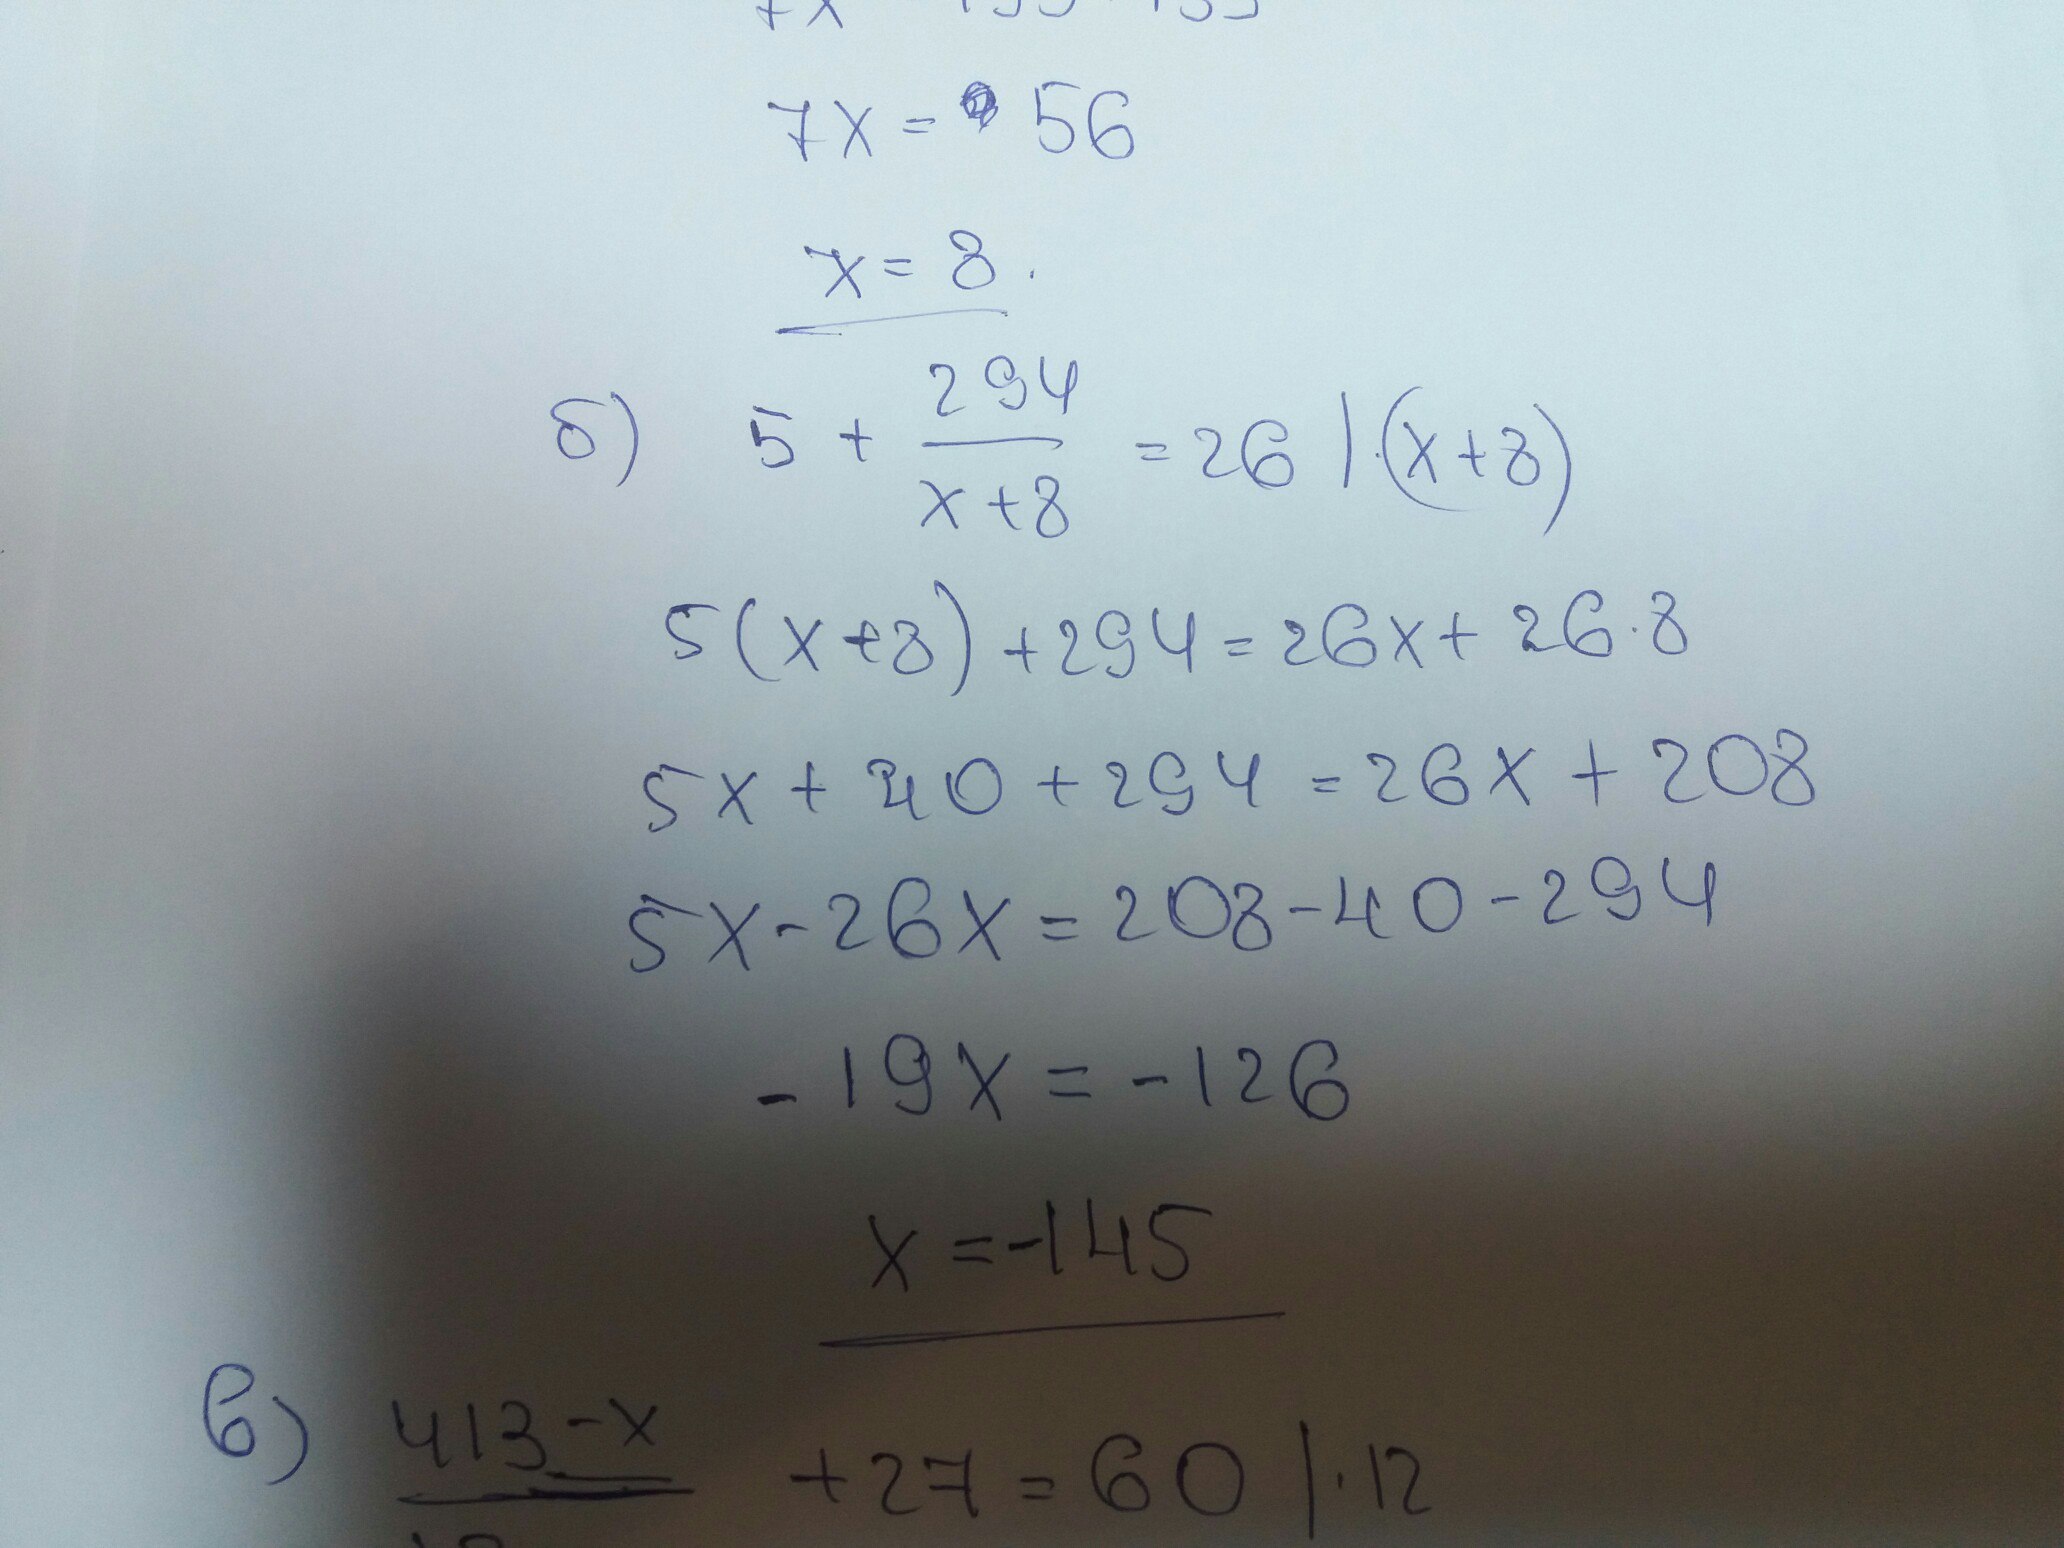 7x = 56
x = 8.
б) 5 + 294/(x+8) = 26 |·(x+8)
5(x+8)+294=26x+26·8
5x+40+294=26x+208
5x-26x=208-40-294
-19x=-126
x=-145
в) 413-x +27=60 |·12